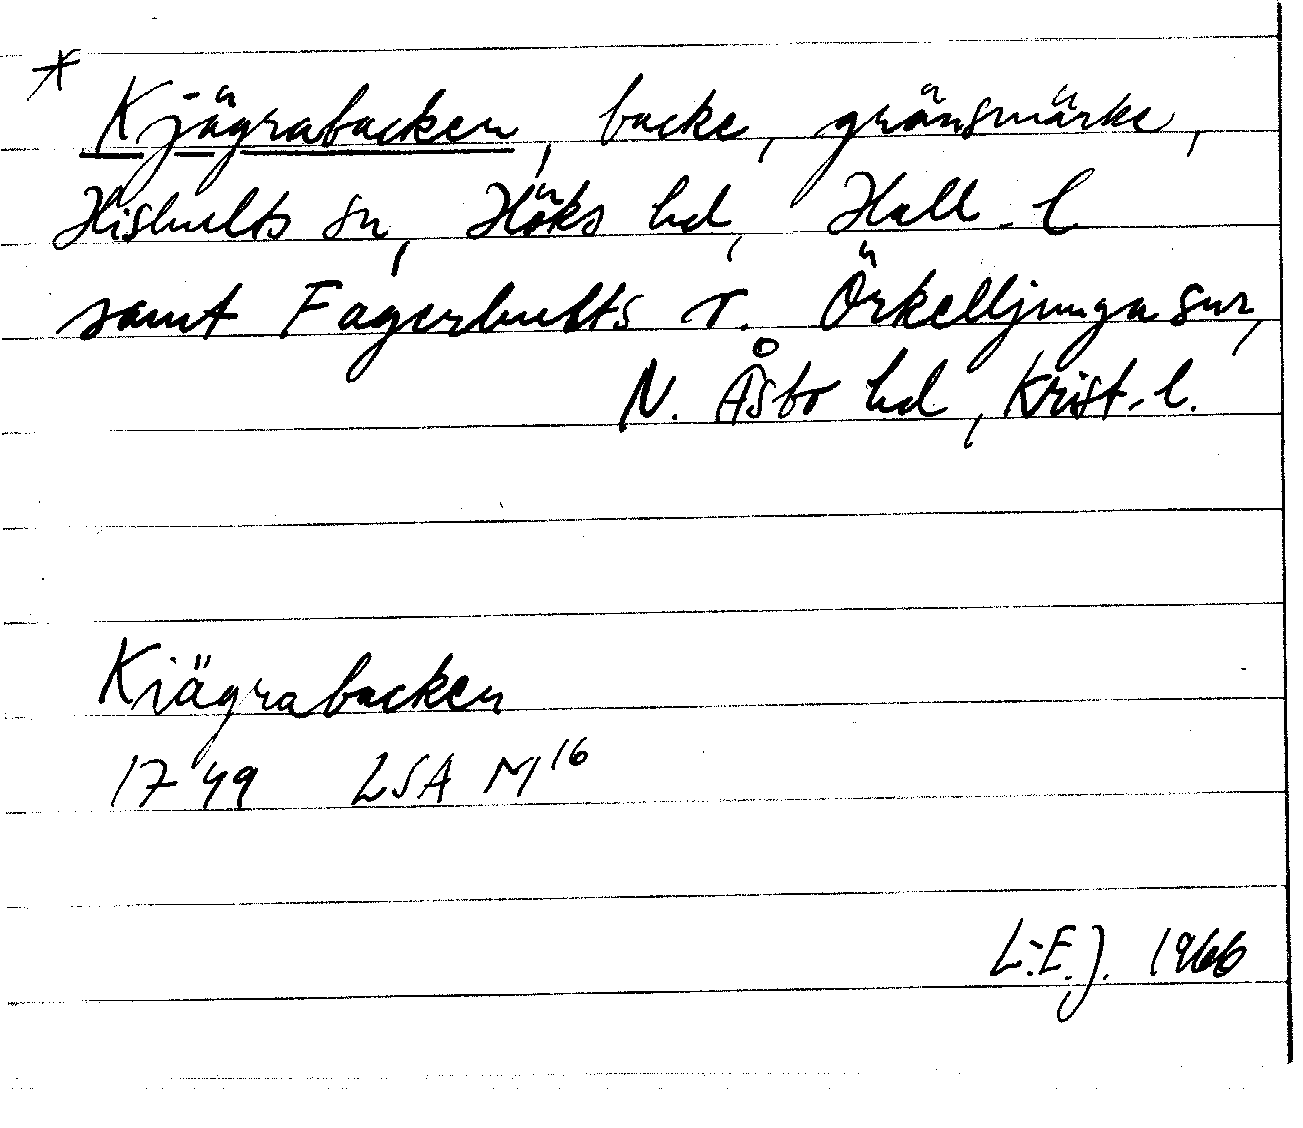 * Kjägrabacken, backe, gränsmärke,
Hishults sn, Höks hd, Hall. l
samt Fagerhults o. Örkelljunga snr,
N. Åsbo hd, Krist. l.
Kiägrabacken
1749 LSA M16
L.-E.J. 1966